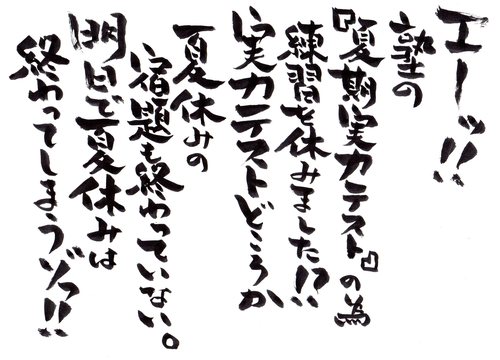 エーッ!!
塾の
『夏期実力テスト』の為
練習を休みました!?
実力テストどころか
夏休みの
宿題も終わっていない。
明日で夏休みは
終わってしまうゾッ!!